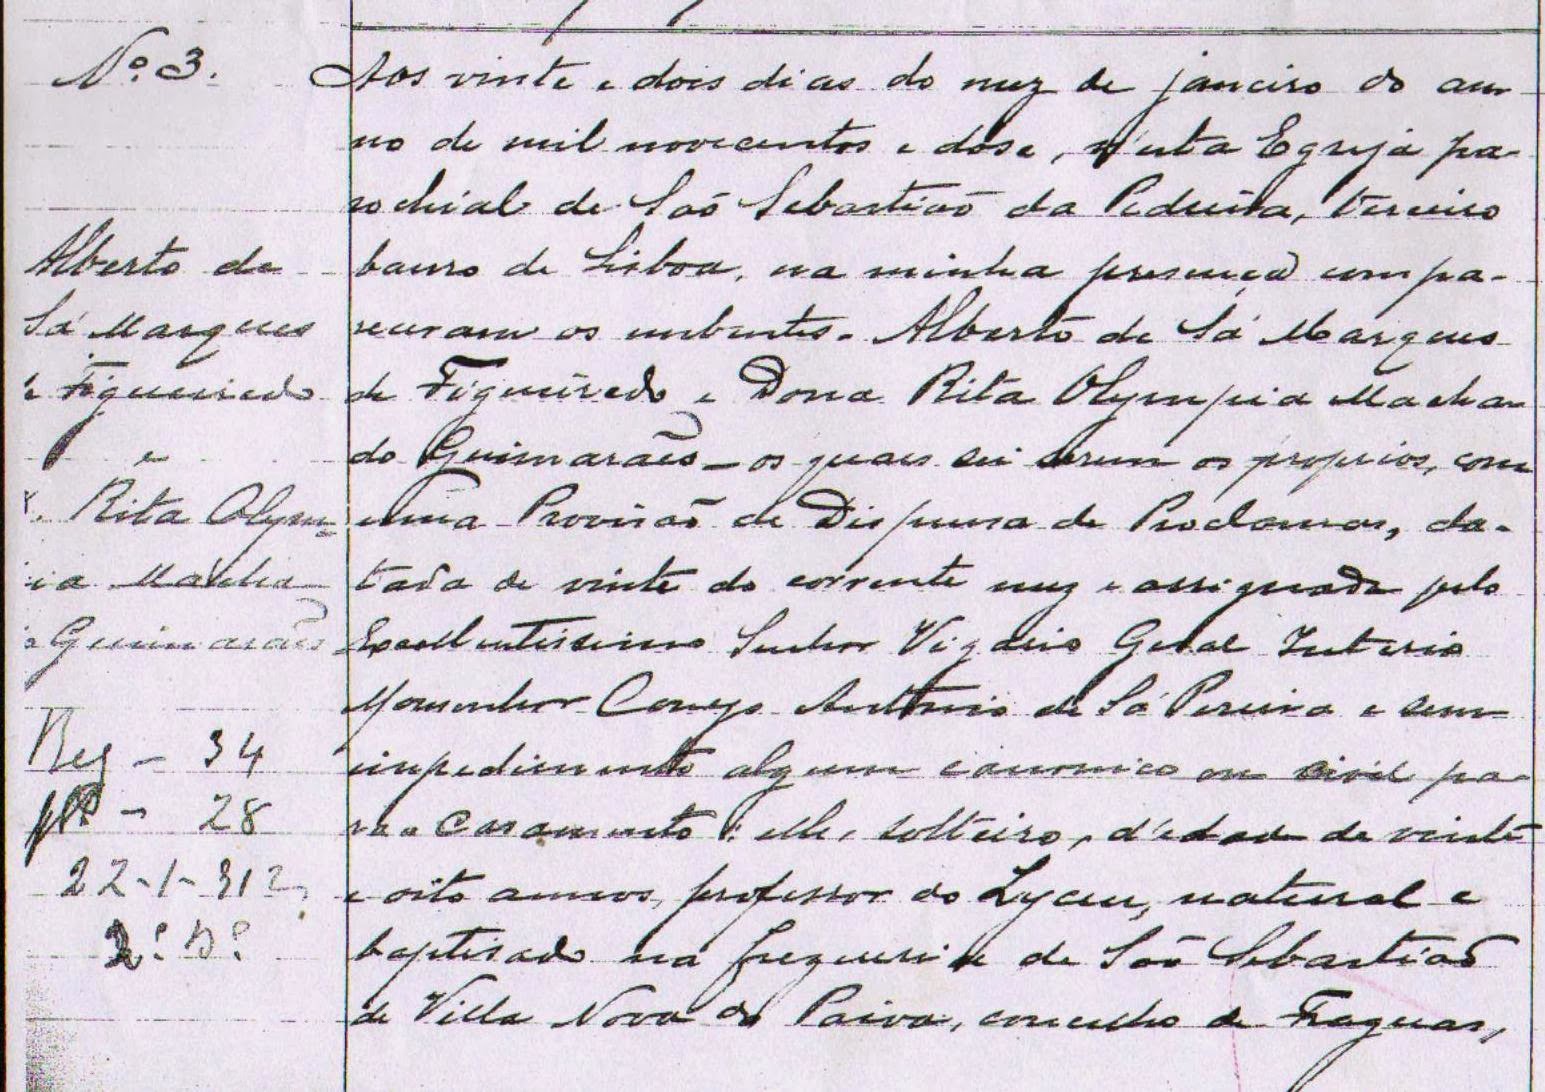 Nº 3.
Alberto de
Sá Marques
e Figueiredo
e
Rita Olym-
ia Macha
Guimarães
Reg - 34
28
22-1-912
2º
Aos vinte e dois dias do mez de janeiro do an-
no de mil novecentos e dose, n'esta Egreja pa-
rochial de São Sebastião da Pedreira, terceiro
bairro de Lisboa, na minha presença compa-
receram os nubentes. Alberto de Sá Marques
de Figueiredo e Dona Rita Olympia Macha-
do Guimarães – os quaes sei serem os proprios, com
uma Provisão de Dispensa de Proclamas, da-
tada de vinte do corrente mez e assignada pelo
Excellentissimo Senhor Vigario Geral Interio
Monsenhor Conego Antonio de Sá Pereira e sem
impedimento algum canonico ou civil pa-
ra o casamento: elle, solteiro, d'edade de vinte
e oito annos, professor do Lyceu, natural e
baptisado na freguesia de São Sebastião
de Villa Nova de Paiva, concelho de Fraguas,